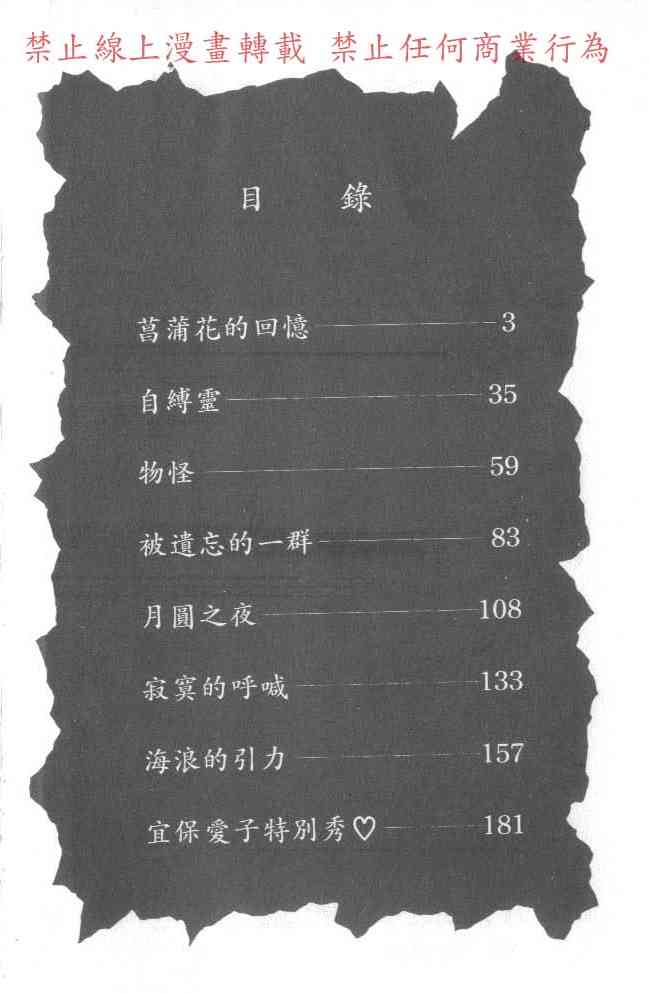 禁止線上漫畫轉載 禁止任何商業行為
目 錄
菖蒲花的回憶 3
自縛靈 35
物怪 59
被遺忘的一群 83
月圓之夜 108
寂寞的呼喊 133
海浪的引力 157
宜保愛子特別秀♡ 181